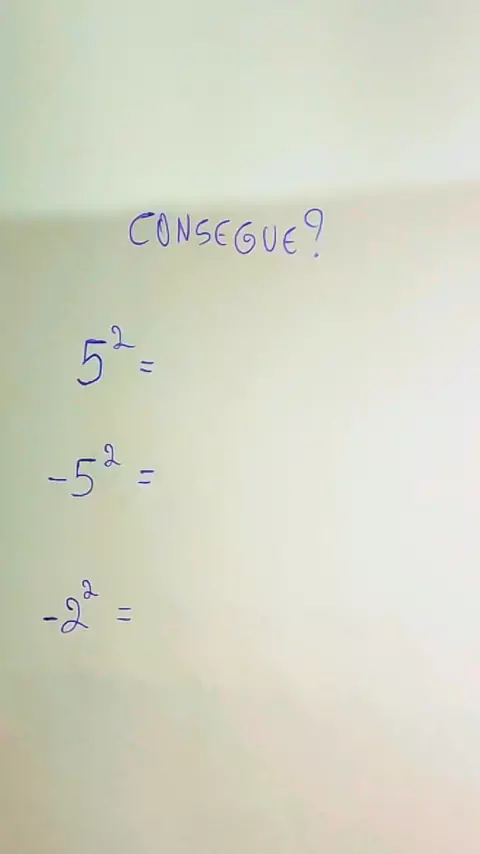 CONSEGUE?
5² =
-5² =
-2² =